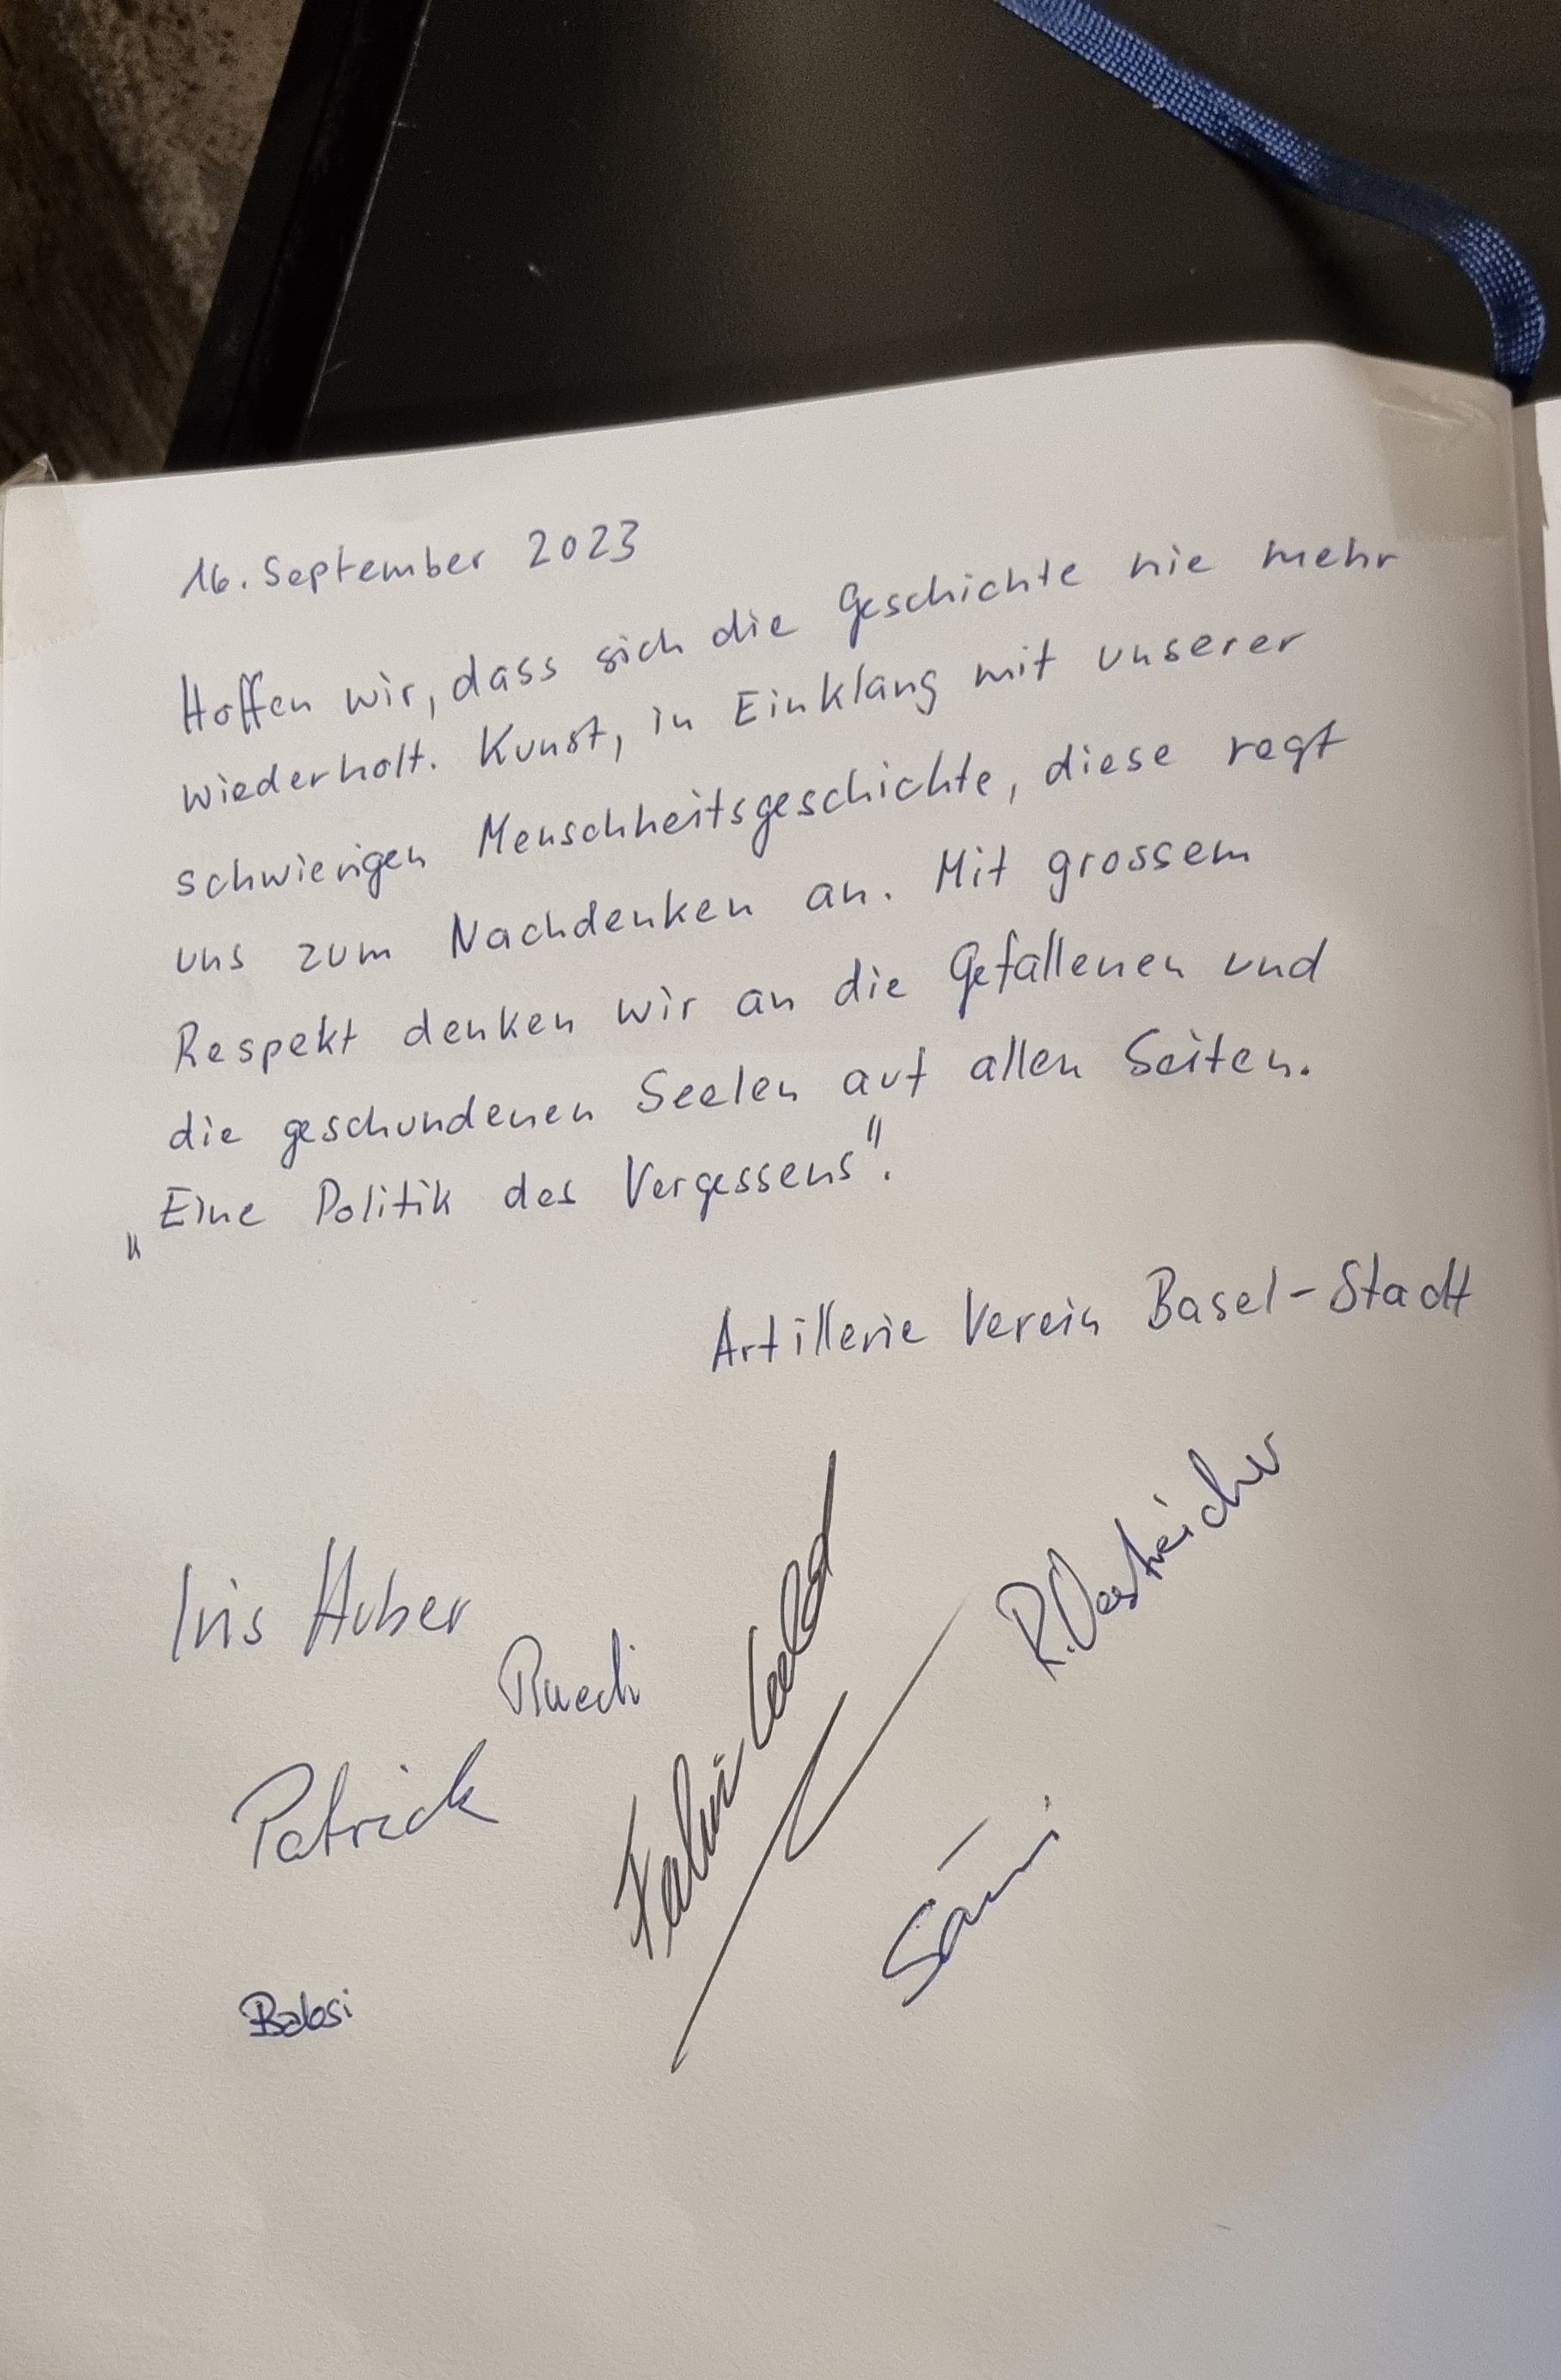 16. September 2023
Hoffen wir, dass sich die Geschichte nie mehr
wiederholt. Kunst, in Einklang mit unserer
schwierigen Menschheitsgeschichte, diese regt
uns zum Nachdenken an. Mit grossem
Respekt denken wir an die Gefallenen und
die geschundenen Seelen auf allen Seiten.
„Eine Politik des Vergessens".
Artillerie Verein Basel-Stadt
Iris Huber
R. Oestreicher
Ruedi
Patrick
Sämi